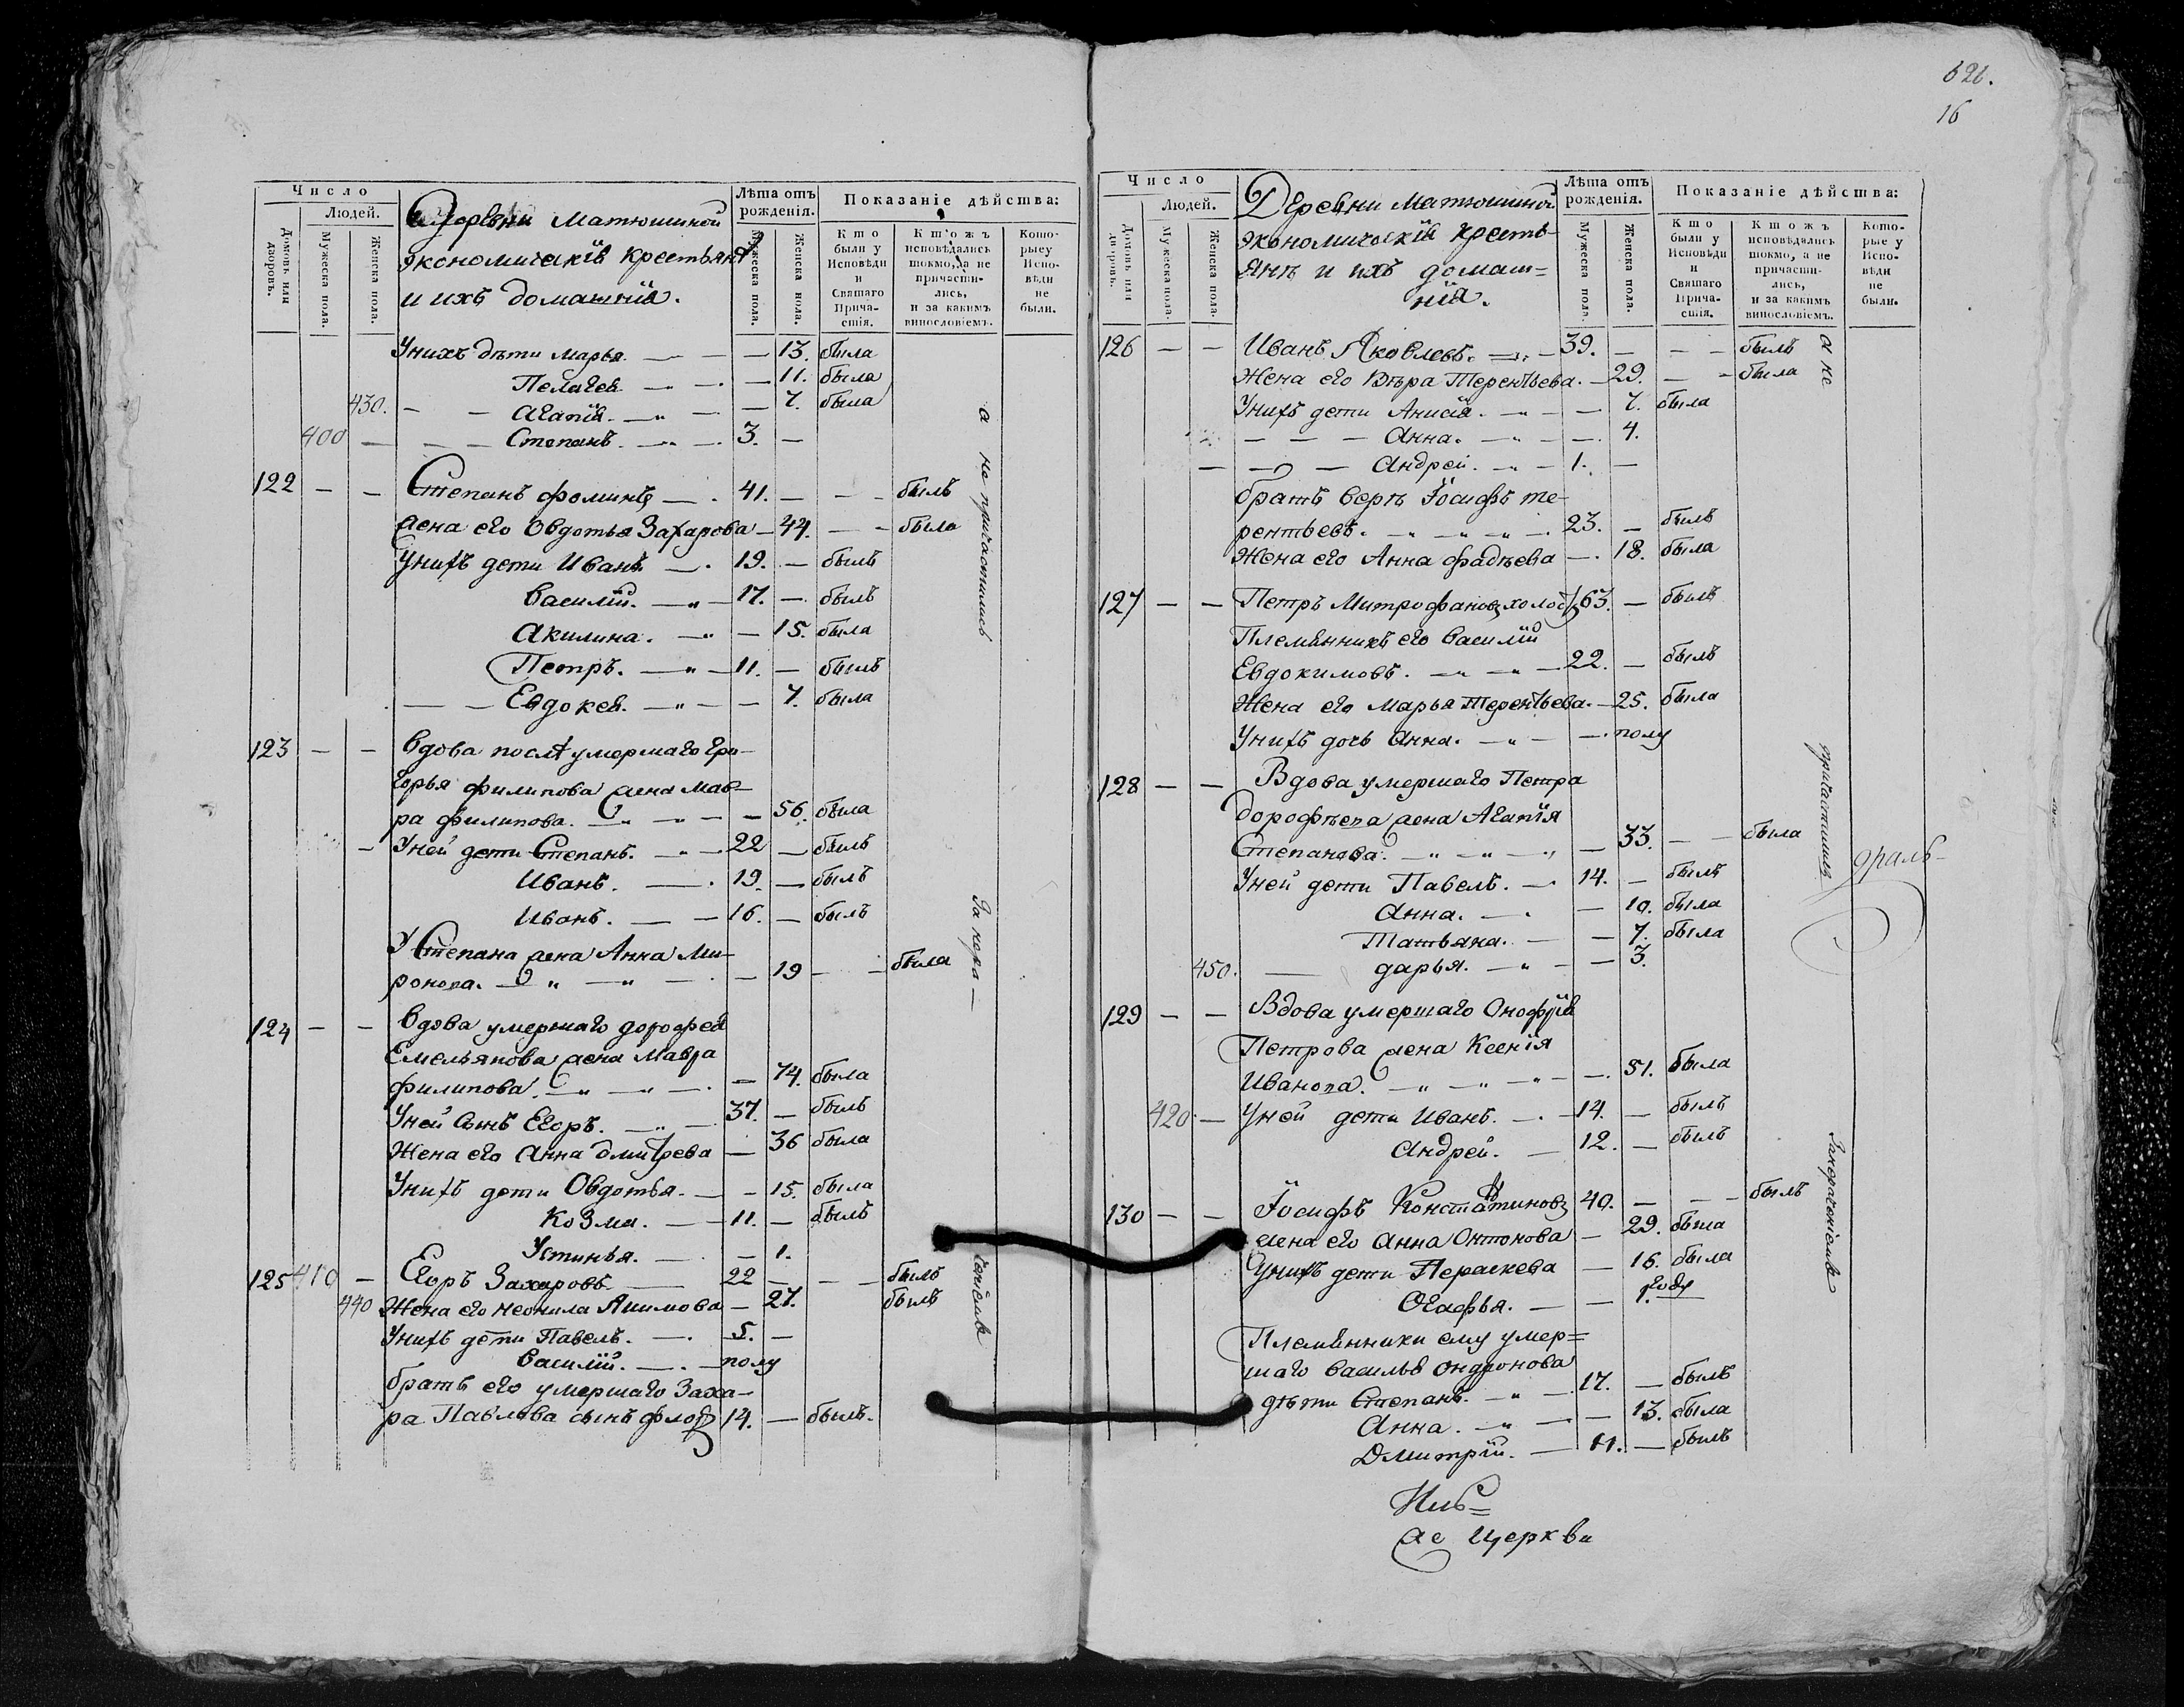 Число
Людей.
Домовъ или дворовъ.
Мужеска пола.
Женска пола.
Деревни Матюшиной
экономическiя крестьянъ
и ихъ домашнiя.
Лѣта отъ рожденiя.
Мужеска пола.
Женска пола.
Показанiе дѣйства:
Кто были у Исповѣди и Святаго Причастiя.
Ктожъ исповѣдались токмо, а не причастились, и за какимъ винословiемъ.
Которыеу Исповѣди не были.
Унихъ дѣти Марья. — 13. была
Пелагея. — 11. была
430. — Агапiя. — 7. была
400 — Степанъ. — 3. —
122 — — Степанъ Фоминъ — 41. — — былъ
жена его Овдотья Захарова — 44. — — была
Унихъ дети Иванъ — 19. — былъ
Василiй. — 17. — былъ
Акилина. — 15. была
Петръ. — 11. — былъ
Евдокея. — 7. была
123 — — Вдова послѣ умершаго Гри-
горья Филипова жена Мав-
ра Филипова. — 56. была
Уней дети Степанъ. — 22 — былъ
Иванъ. — 19. — былъ
Иванъ. — 16. — былъ
У Степана жена Анна Ми-
ронова. — 19 — — была
124 — — Вдова умершаго Дорофея
Емельянова жена Мавра
Филипова. — 74. была
Уней сынъ Егоръ. — 37. — былъ
Жена его Анна Дмитрева — 36 была
Унихъ дети Овдотья. — 15. была
Козма. — 11. — былъ
Устинья. — 1.
125 410 — Егоръ Захаровъ. — 22 — — былъ
440 Жена его Неонила Акимова — 27. былъ
Унихъ дети Павелъ. — 5. —
Василiй. — полу
братъ его умершаго Заха-
ра Павлова сынъ Флоръ 14. — былъ.
а не причастились
За нера-
ченiемъ
626.
16
Число
Людей.
Домовъ или дворовъ.
Мужеска пола.
Женска пола.
Деревни Матюшиной
экономическiя кресть-
янъ и ихъ домаш=
нiя.
Лѣта отъ рожденiя.
Мужеска пола.
Женска пола.
Показанiе дѣйства:
Кто были у Исповѣди и Святаго Причастiя.
Ктожъ исповѣдались токмо, а не причастились, и за какимъ винословiемъ.
Которые у Исповѣди не были.
126 — — Иванъ Яковлевъ. — 39. — — былъ
Жена его Вѣра Терентьева. — 29. — — была
Унихъ дети Анисiя. — 7. была
Анна. — 4.
Андрей. — 1. —
братъ Веръ Iосифъ Те-
рентьевъ. — 23. — былъ
Жена его Анна Фадѣева — 18. была
127 — — Петръ Митрофановъ холостъ 63. — былъ
Племянникъ его Василiй
Евдокимовъ. — 22. — былъ
Жена его Марья Терентьева. — 25. была
Унихъ дочь Анна. — полу
128 — — Вдова умершаго Петра
Дорофѣева жена Агапiя
Степанова. — 33. — — была
Уней дети Павелъ. — 14. — былъ
Анна. — 10. была
Татьяна. — 7. была
450. — Дарья. — 3.
129 — — Вдова умершаго Онофрiя
Петрова жена Ксенiя
Иванова. — 51. была
420 — Уней дети Иванъ. — 14. — былъ
Андрей. — 12. — былъ
130 — — Iосифъ Констатиновъ 40. — — былъ
жена его Анна Онтонова — 29. была
Унихъ дети Пераскева — 16. была
Огафья. — 1. году
Племянники ему умер=
шаго Василья Ондронова
дѣти Степанъ. — 17. — былъ
Анна. — 13. была
Дмитрiй. — 11. — былъ
а не
причастились
Занераченiемъ
ае Церкви